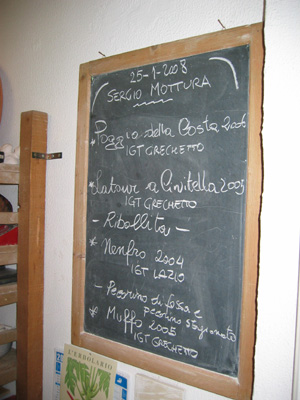 25-1-2008
SERGIO MOTTURA
* Poggio della Costa 2006
IGT GRECHETTO
* Latour a Civitella 2005
IGT GRECHETTO
- Ribollita -
* Nenfro 2004
IGT LAZIO
- Pecorino di fossa e
pecorino stagionato
* Muffo 2005
IGT GRECHETTO
L'ERBOLARIO